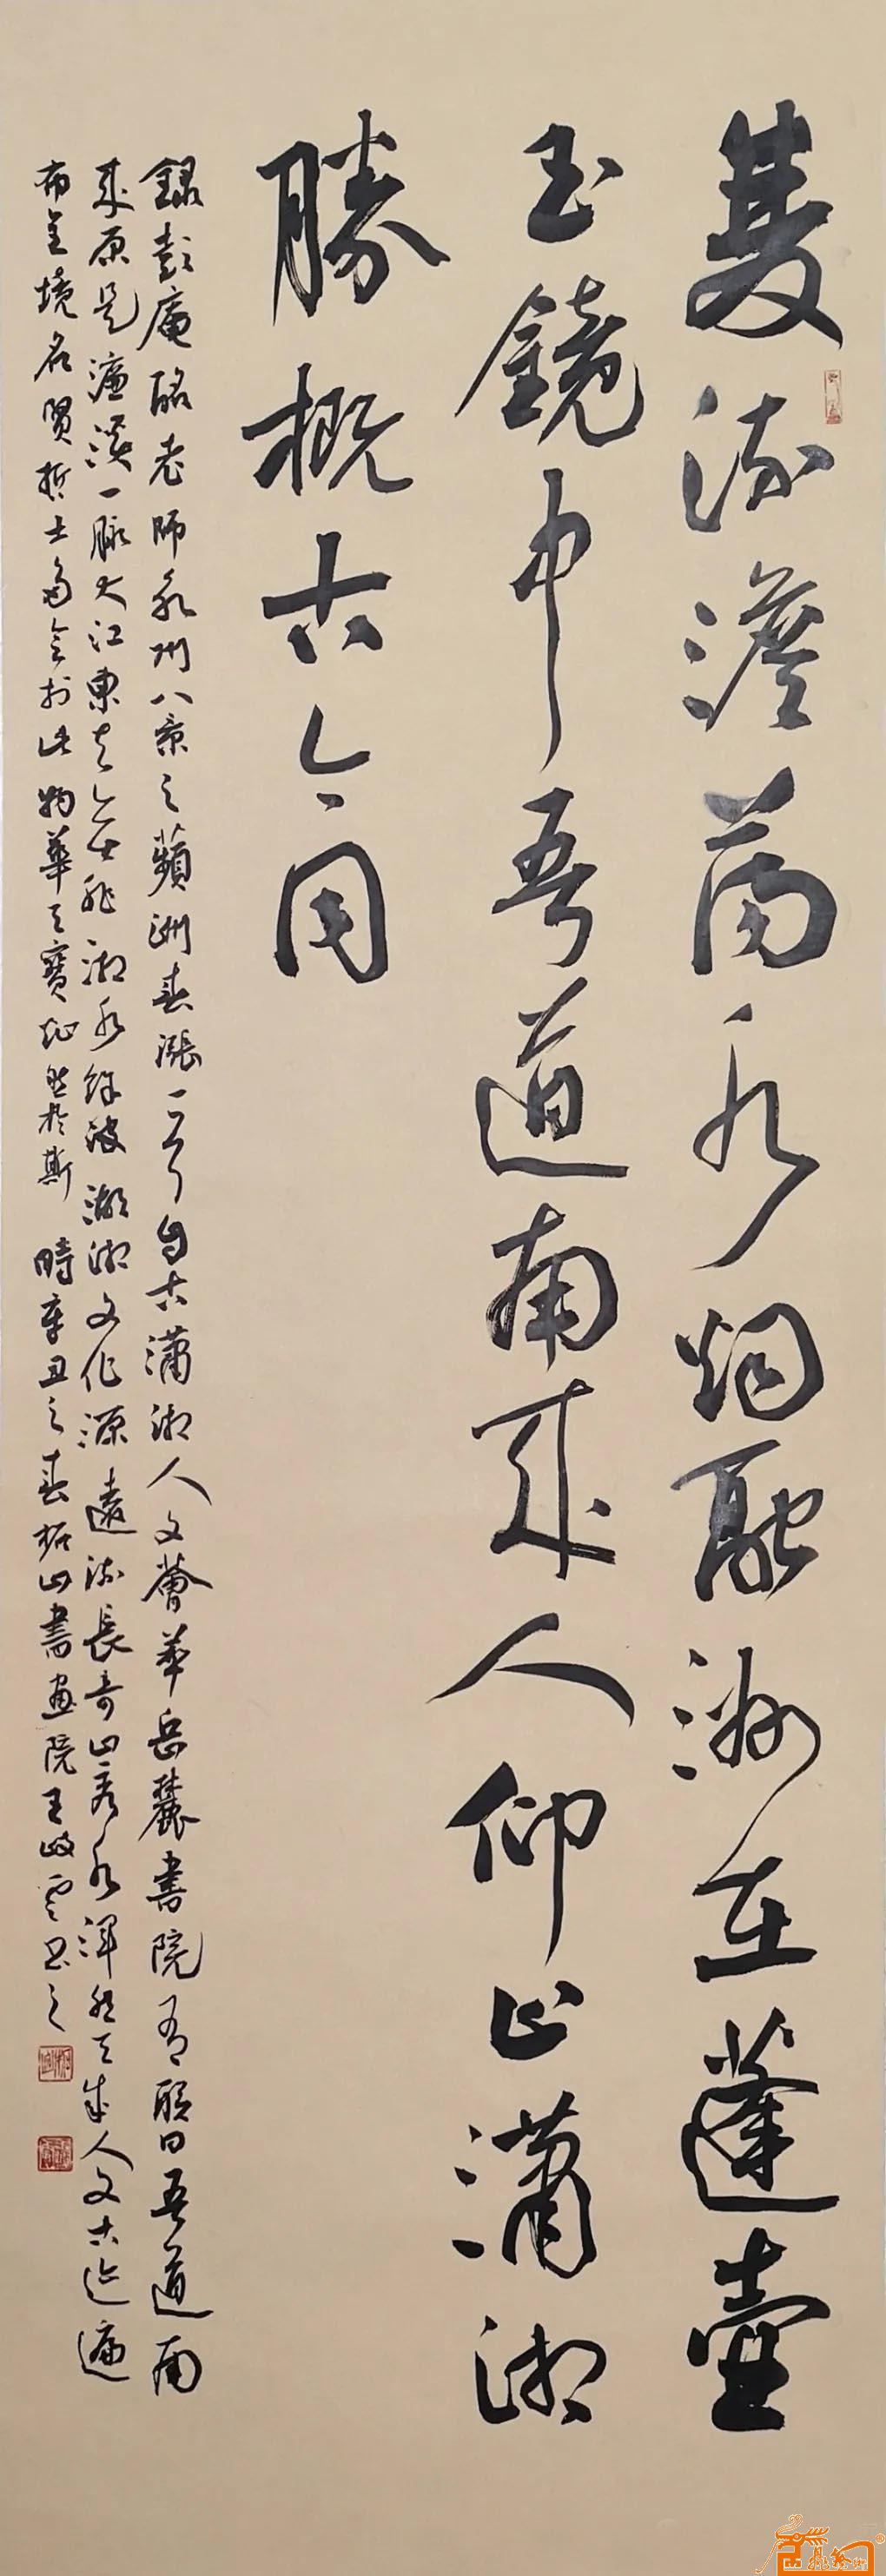 雙流澹蕩水烟融洲在蓬壺
玉鏡中吾道南來人仰止瀟湘
勝概古今同
錄彭庵酩老師永州八景之蘋洲春漲一首自古瀟湘人文薈萃岳麓書院有聯曰吾道南
來原是濂溪一脈大江東去無非湘水餘波湖湘文化源遠流長奇山秀水渾然天成人文古迹遍
布全境名賢哲士多會於此物華天寶然於斯 時辛丑之春柘山書畫院王岐雲書之